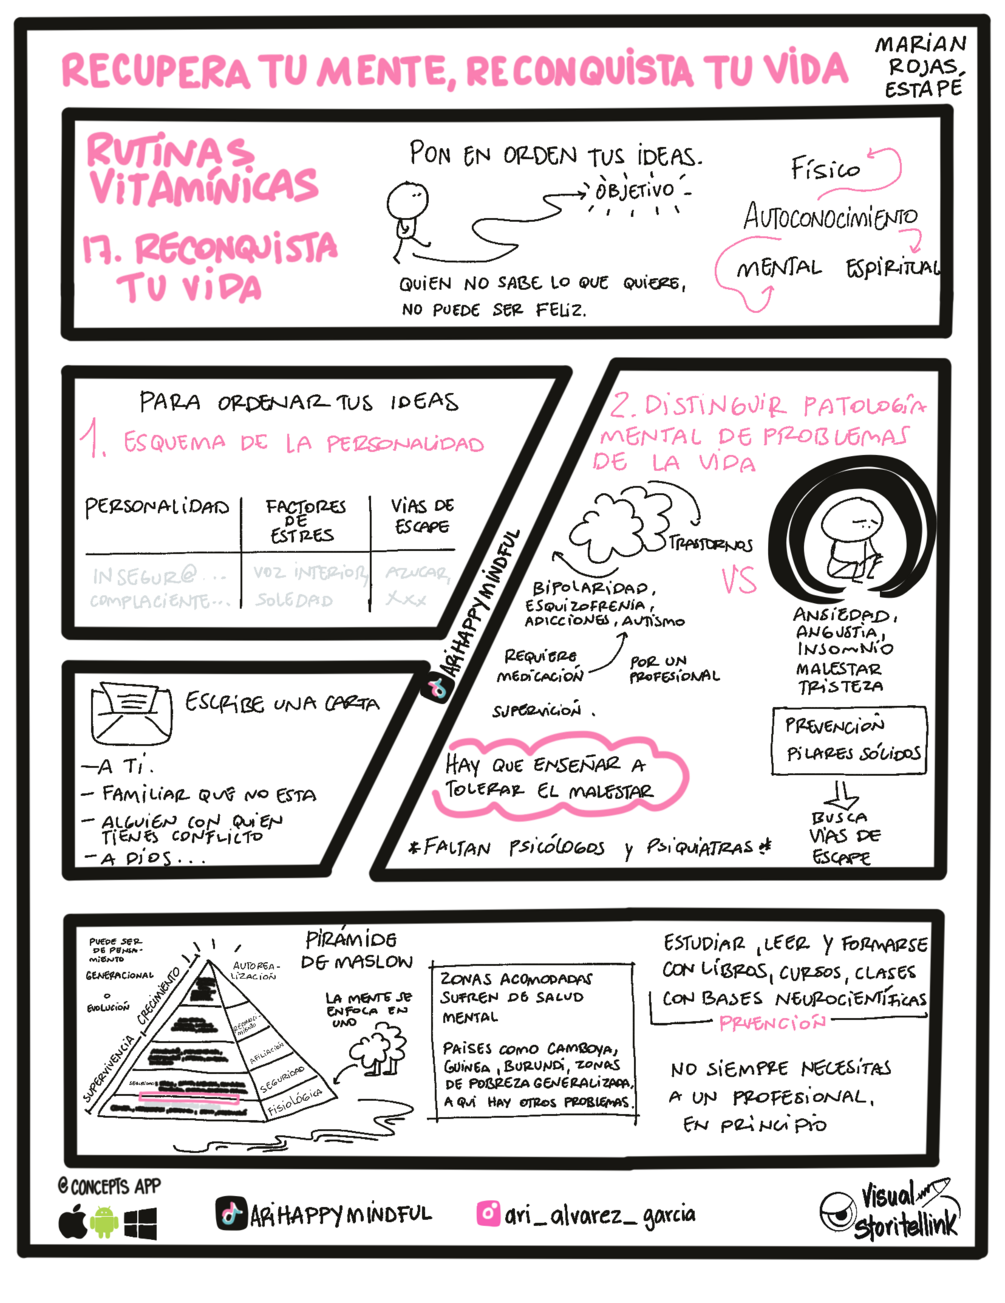 RECUPERA TU MENTE, RECONQUISTA TU VIDA
MARIAN
ROJAS
ESTAPÉ
RUTINAS
VITAMÍNICAS
17. RECONQUISTA
TU VIDA
PON EN ORDEN TUS IDEAS.
OBJETIVO
QUIEN NO SABE LO QUE QUIERE,
NO PUEDE SER FELIZ.
FÍSICO
AUTOCONOCIMIENTO
MENTAL ESPIRITUAL
PARA ORDENAR TUS IDEAS
1. ESQUEMA DE LA PERSONALIDAD
PERSONALIDAD
FACTORES
DE
ESTRES
VÍAS DE
ESCAPE
INSEGUR@...
COMPLACIENTE...
VOZ INTERIOR,
SOLEDAD
AZUCAR,
XXX
ARIHAPPYMINDFUL
ESCRIBE UNA CARTA
- A TÍ.
- FAMILIAR QUE NO ESTA
- ALGUIEN CON QUIEN
TIENES CONFLICTO
- A DIOS...
2. DISTINGUIR PATOLOGÍA
MENTAL DE PROBLEMAS
DE LA VIDA
TRASTORNOS
VS
BIPOLARIDAD,
ESQUIZOFRENIA,
ADICCIONES, AUTISMO
REQUIERE
MEDICACIÓN
POR UN
PROFESIONAL
SUPERVICIÓN.
ANSIEDAD,
ANGUSTIA,
INSOMNIO
MALESTAR
TRISTEZA
PREVENCIÓN
PILARES SÓLIDOS
BUSCA
VÍAS DE
ESCAPE
HAY QUE ENSEÑAR A
TOLERAR EL MALESTAR
*FALTAN PSICÓLOGOS Y PSIQUIATRAS*
PUEDE SER
DE PENSA-
MIENTO
GENERACIONAL
O
EVOLUCIÓN
SUPERVIVENCIA CRECIMIENTO
AUTOREA-
LIZACIÓN
RECONOCI-
MIENTO
AFILIACIÓN
SEGURIDAD
FISIOLÓGICA
PIRÁMIDE
DE MASLOW
LA MENTE SE
ENFOCA EN
UNO
ZONAS ACOMODADAS
SUFREN DE SALUD
MENTAL
PAISES COMO CAMBOYA,
GUINEA, BURUNDI, ZONAS
DE POBREZA GENERALIZADA,
AQUI HAY OTROS PROBLEMAS.
ESTUDIAR, LEER Y FORMARSE
CON LIBROS, CURSOS, CLASES
CON BASES NEUROCIENTÍFICAS
PRVENCIÓN
NO SIEMPRE NECESITAS
A UN PROFESIONAL,
EN PRINCIPIO
@CONCEPTS APP
ARIHAPPYMINDFUL
ari_alvarez_garcia
Visual
Storitellink